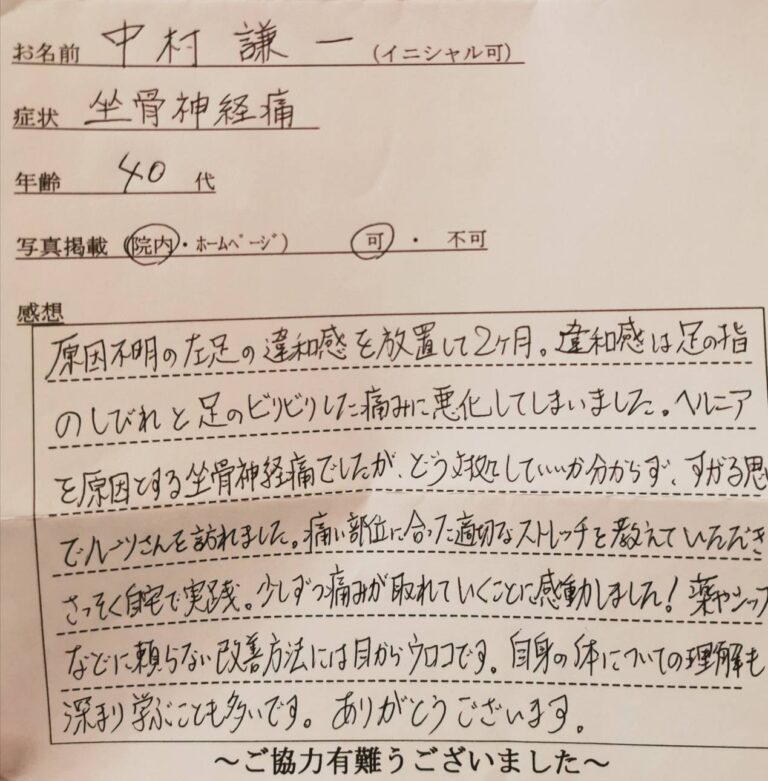 お名前 中村 謙一 (イニシャル可)
症状 坐骨神経痛
年齢 40 代
写真掲載 (院内・ホームページ) 可 ・ 不可
感想
原因不明の左足の違和感を放置して2ヶ月。違和感は足の指
のしびれと足のビリビリした痛みに悪化してしまいました。ヘルニア
を原因とする坐骨神経痛でしたが、どう対処していいか分からず、すがる思い
でルーツさんを訪れました。痛い部位に合った適切なストレッチを教えていただき
さっそく自宅で実践。少しずつ痛みが取れていくことに感動しました!薬やシップ
などに頼らない改善方法には目からウロコです。自身の体についての理解も
深まり学ぶことも多いです。ありがとうございます。
～ご協力有難うございました～